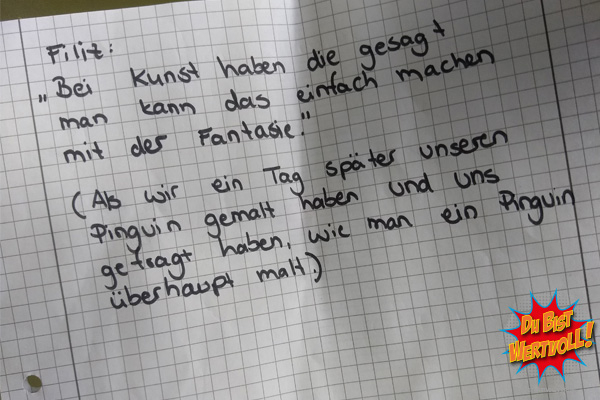 Filiz:
„Bei Kunst haben die gesagt
man kann das einfach machen
mit der Fantasie."
(Als wir ein Tag später unseren
Pinguin gemalt haben und uns
gefragt haben, wie man ein Pinguin
überhaupt malt.)
Du Bist
Wertvoll!